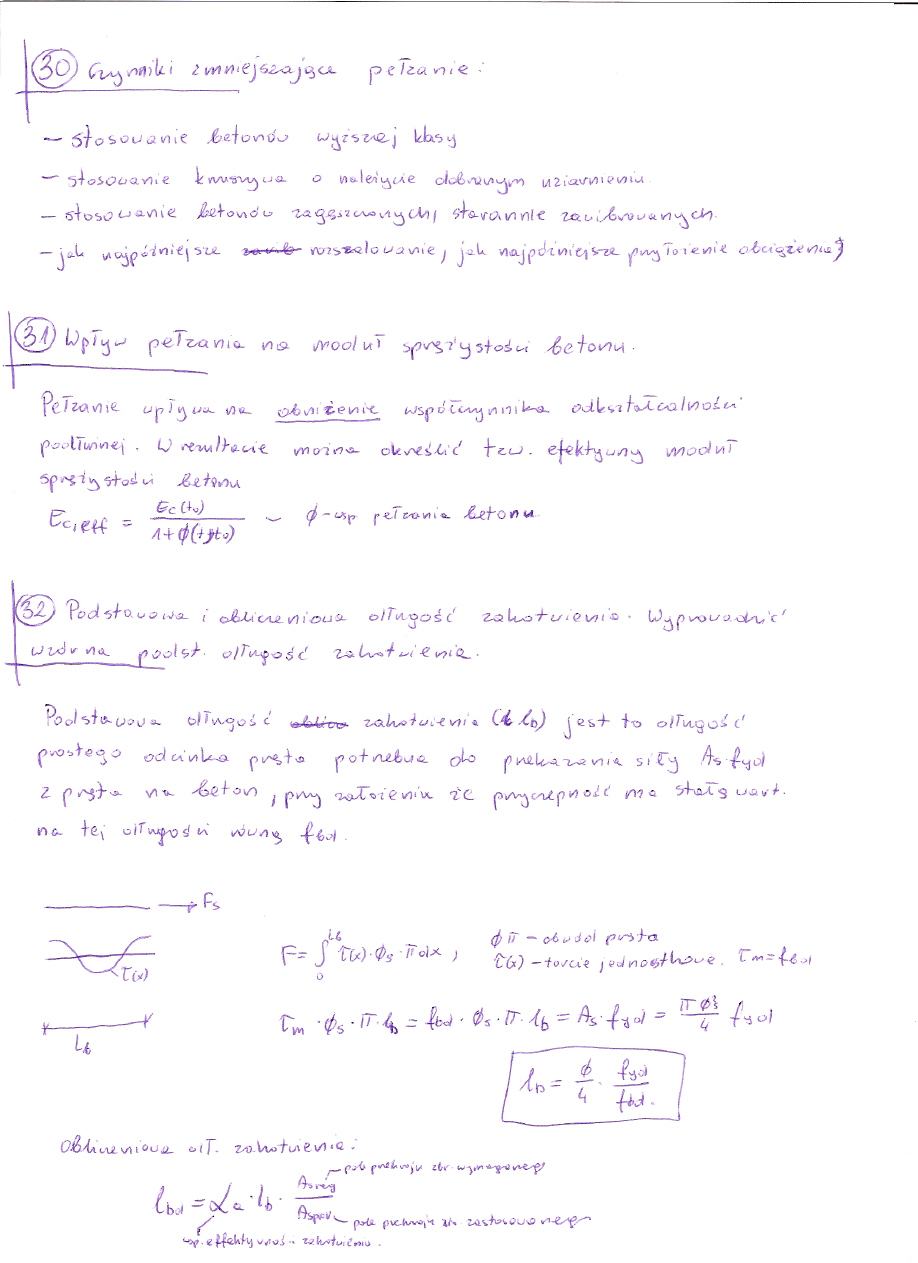 30 Czynniki zmniejszające pełzanie:
- stosowanie betonów wyższej klasy
- stosowanie kruszywa o należycie dobranym uziarnieniu.
- stosowanie betonów zagęszczonych, starannie zawibrowanych.
- jak najpóźniejsze rozszalowanie, jak najpóźniejsze przyłożenie obciążenia
31 Wpływ pełzania na moduł sprężystości betonu.
Pełzanie wpływa na obniżenie współczynnika odkształcalności
podłużnej. W rezultacie można określić tzw. efektywny moduł
sprężystości betonu
Ec,eff = Ec(to) / 1+ϕ(t,to) - ϕ-wsp pełzania betonu
32 Podstawowa i obliczeniowa długość zakotwienia. Wyprowadzić
wzór na podst. długość zakotwienia.
Podstawowa długość zakotwienia (lb) jest to długość
prostego odcinka pręta potrzebna do przekazania siły As·fyd
z pręta na beton, przy założeniu że przyczepność ma stałą wart.
na tej długości równą fbd.
→ Fs
τ(x)
Lb
F = ∫₀^Lb τ(x)·ϕs·π dx ; ϕπ - obwód pręta
τ(x) - tarcie jednostkowe. τm = fbd
τm·ϕs·π·lb = fbd·ϕs·π·lb = As·fyd = πϕs²/4 fyd
lb = ϕ/4 · fyd/fbd.
Obliczeniowa dł. zakotwienia:
lbd = αa·lb· As,req / As,prov
pole przekroju zbr. wymaganego
pole przekroju zbr. zastosowanego
wsp. effektywności zakotwienia.